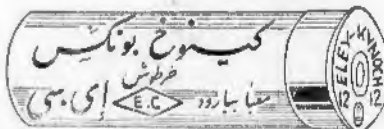 کینوخ بونکس
خرطوش
معبا ببارود E.C إی.سی
ELEY-KYNOCH
12 12